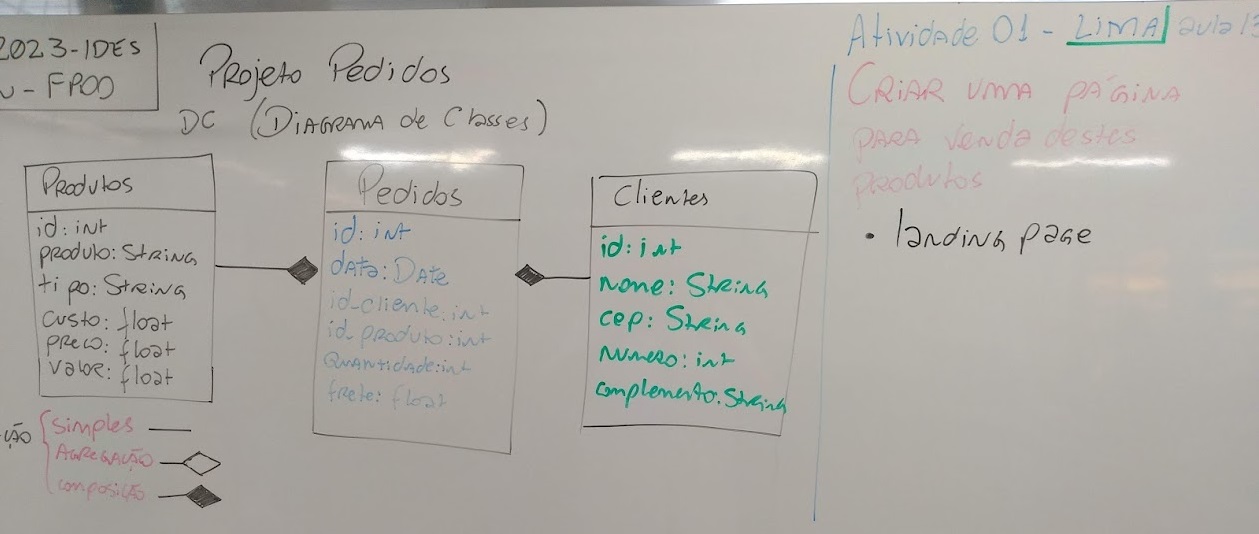 2023-1DES
- FPOO
Projeto Pedidos
DC (Diagrama de Classes)
Produtos
id: int
produto: String
tipo: String
custo: float
preco: float
valor: float
Pedidos
id: int
data: Date
id_cliente: int
id_produto: int
Quantidade: int
frete: float
Clientes
id: int
nome: String
cep: String
numero: int
complemento: String
simples
Agregação
composição
Atividade 01 - LIMA aula 13
Criar uma página
para venda destes
produtos
• landing page